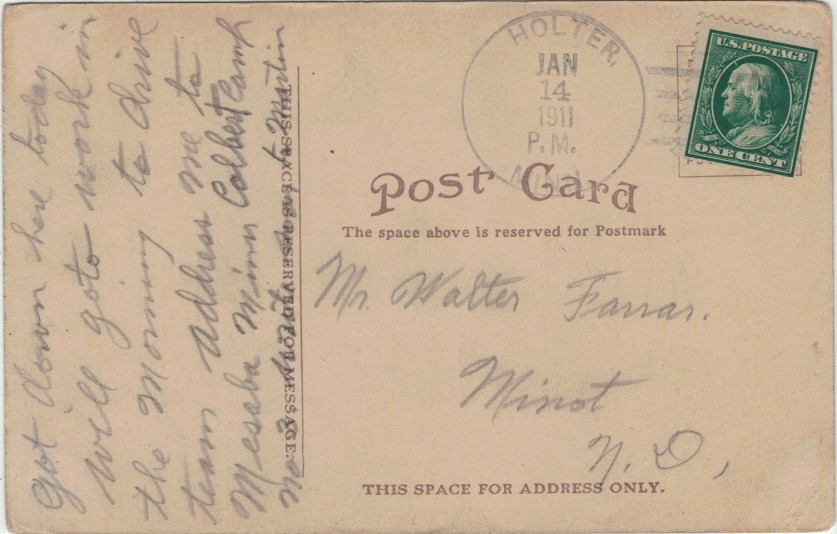 Got down here today
will goto work in
the Morning to drive
team address me to
Messaba Minn Colbert Camp
No 3 Martin
THIS SPACE IS RESERVED FOR MESSAGE.
HOLTER,
JAN
14
1911
P.M.
MINN.
U.S. POSTAGE
ONE CENT
Post Card
The space above is reserved for Postmark
Mr. Walter Farrar.
Minot
N. D,
THIS SPACE FOR ADDRESS ONLY.